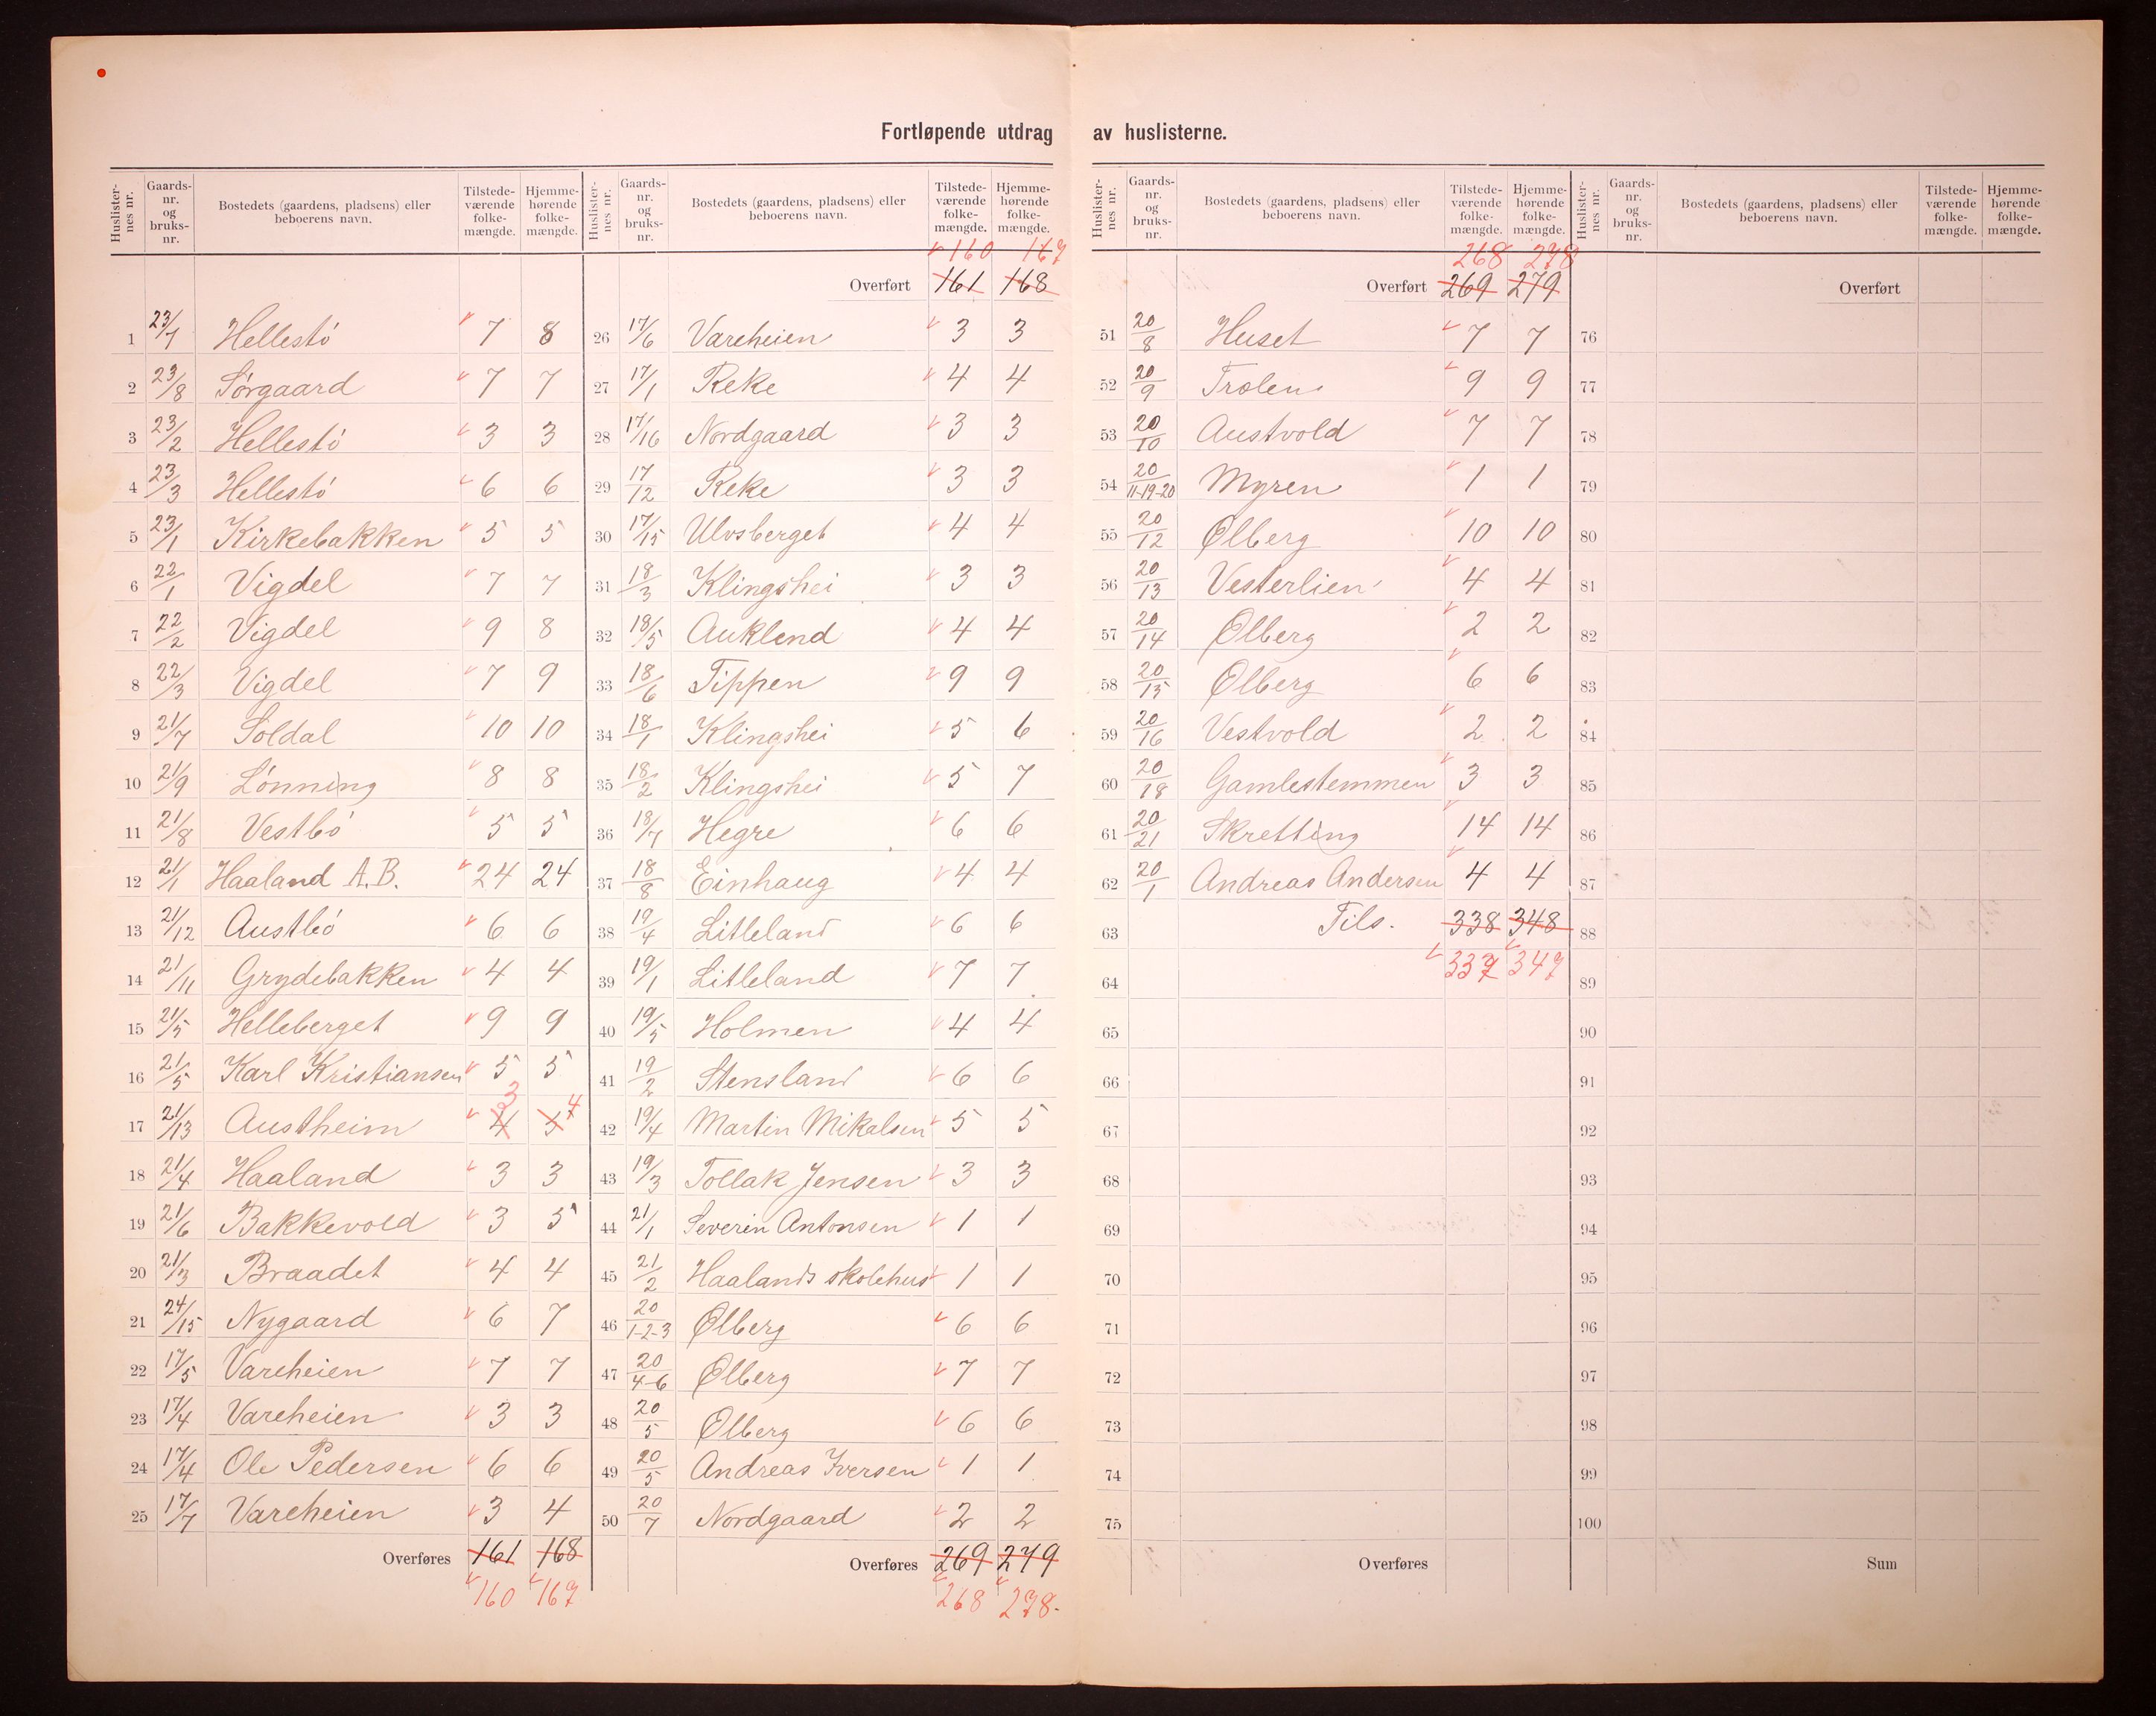 Fortløpende utdrag av huslisterne.
Huslister-nes nr. Gaards-nr. og bruks-nr. Bostedets (gaardens, pladsens) eller beboerens navn. Tilstede-værende folke-mængde. Hjemme-hørende folke-mængde.
1 23/7 Hellestö 7 8
2 23/8 Sørgaard 7 7
3 23/2 Hellestö 3 3
4 23/3 Hellestö 6 6
5 23/1 Kirkebakken 5 5
6 22/1 Vigdel 7 7
7 22/2 Vigdel 9 8
8 22/3 Vigdel 7 9
9 21/7 Soldal 10 10
10 21/9 Lönning 8 8
11 21/8 Vestbö 5 5
12 21/1 Haaland A.B. 24 24
13 21/12 Austbö 6 6
14 21/11 Grydebakken 4 4
15 21/5 Helleberget 9 9
16 21/5 Karl Kristiansen 5 5
17 21/13 Austheim 4 3 5 4
18 21/4 Haaland 3 3
19 21/6 Bakkevold 3 5
20 21/3 Braadet 4 4
21 24/15 Nygaard 6 7
22 17/5 Vareheien 7 7
23 17/4 Vareheien 3 3
24 17/4 Ole Pedersen 6 6
25 17/7 Vareheien 3 4
Overføres 161 168
160 167
Huslister-nes nr. Gaards-nr. og bruks-nr. Bostedets (gaardens, pladsens) eller beboerens navn. Tilstede-værende folke-mængde. Hjemme-hørende folke-mængde.
160 167
Overført 161 168
26 17/6 Vareheien 3 3
27 17/1 Reke 4 4
28 17/16 Nordgaard 3 3
29 17/12 Reke 3 3
30 17/15 Ulvsberget 4 4
31 18/3 Klingshei 3 3
32 18/5 Auklend 4 4
33 18/6 Tippen 9 9
34 18/1 Klingshei 5 6
35 18/2 Klingshei 5 7
36 18/7 Hegre 6 6
37 18/8 Einhaug 4 4
38 19/4 Litleland 6 6
39 19/1 Litleland 7 7
40 19/5 Holmen 4 4
41 19/2 Stensland 6 6
42 19/4 Martin Mikalsen 5 5
43 19/3 Tollak Jensen 3 3
44 21/1 Severin Antonsen 1 1
45 21/2 Haalands skolehus 1 1
46 20/1-2-3 Ølberg 6 6
47 20/4-6 Ølberg 7 7
48 20/5 Ølberg 6 6
49 20/5 Andreas Iversen 1 1
50 20/7 Nordgaard 2 2
Overføres 269 279
268 278.
Huslister-nes nr. Gaards-nr. og bruks-nr. Bostedets (gaardens, pladsens) eller beboerens navn. Tilstede-værende folke-mængde. Hjemme-hørende folke-mængde.
268 278
Overført 269 279
51 20/8 Huset 7 7
52 20/9 Trolen 9 9
53 20/10 Austvold 7 7
54 20/11-19-20 Myren 1 1
55 20/12 Ølberg 10 10
56 20/13 Vesterlien 4 4
57 20/14 Ølberg 2 2
58 20/15 Ølberg 6 6
59 20/16 Vestvold 2 2
60 20/18 Gamlestemmen 3 3
61 20/21 Skretting 14 14
62 20/1 Andreas Andersen 4 4
63 Tils. 338 348
64 337 347
65
66
67
68
69
70
71
72
73
74
75
Overføres
Huslister-nes nr. Gaards-nr. og bruks-nr. Bostedets (gaardens, pladsens) eller beboerens navn. Tilstede-værende folke-mængde. Hjemme-hørende folke-mængde.
Overført
76
77
78
79
80
81
82
83
84
85
86
87
88
89
90
91
92
93
94
95
96
97
98
99
100
Sum